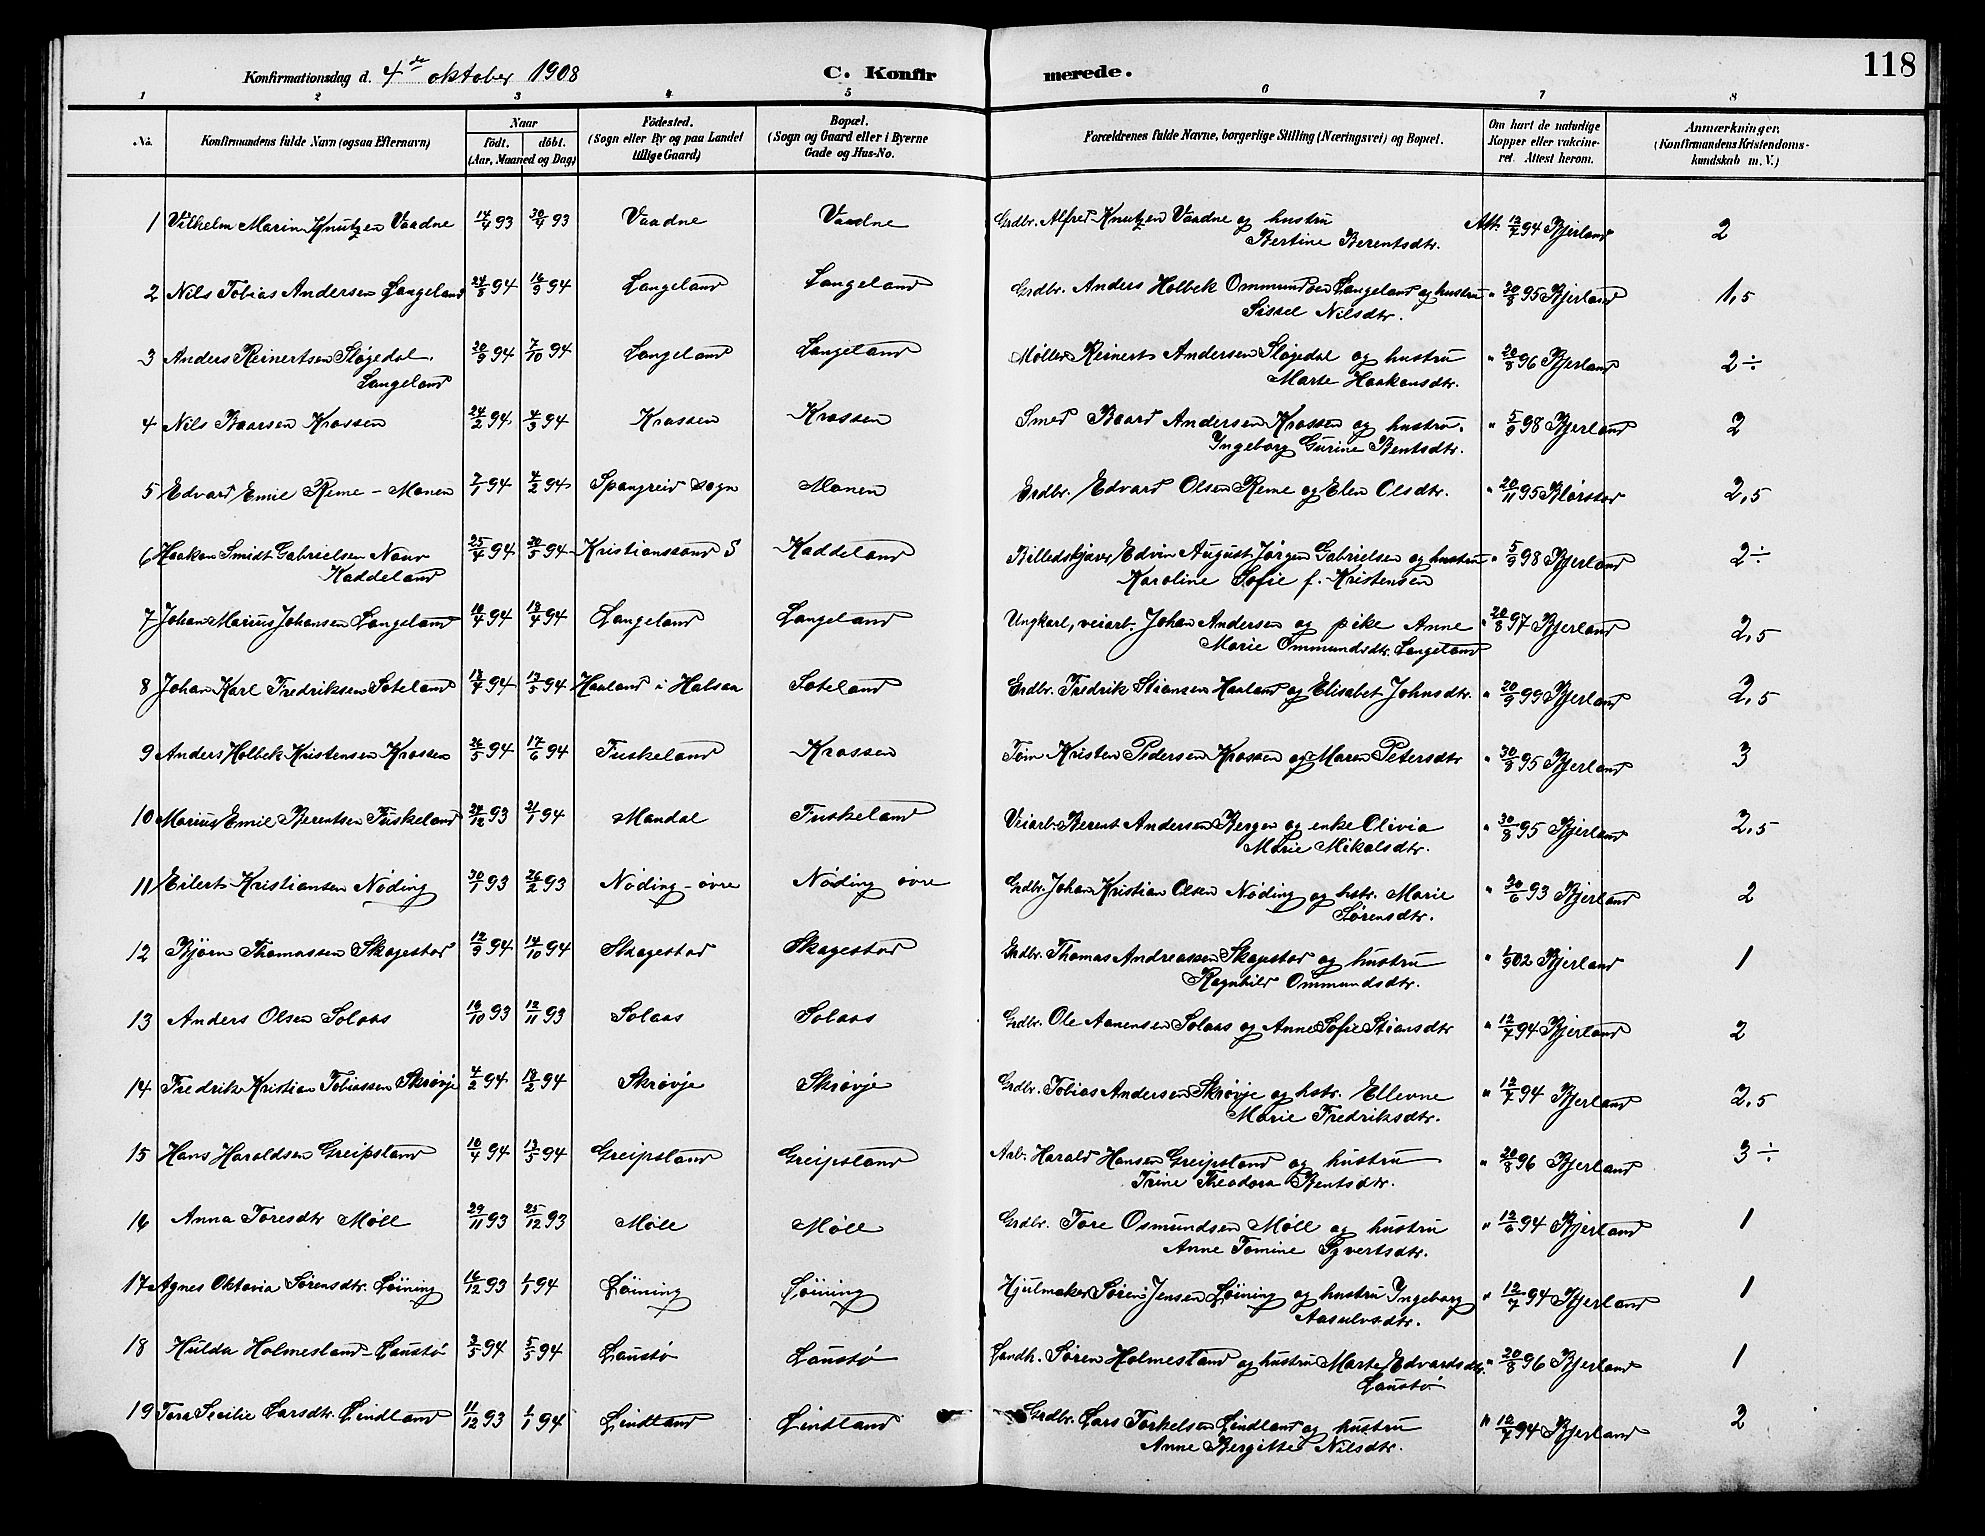 118
Konfirmationsdag d. 4de oktober 1908 C. Konfirmerede.
1 2 3 4 5 6 7 8
No. Konfirmandens fulde Navn (ogsaa Efternavn) Naar født. døbt. (Aar, Maaned og Dag) Fødested. (Sogn eller By og paa Landet tillige Gaard) Bopæl. (Sogn og Gaard eller i Byerne Gade og Hus-No. Forældrenes fulde Navne, borgerlige Stilling (Næringsvei) og Bopæl. Om havt de naturlige Kopper eller vakcineret. Attest herom. Anmærkninger. (Konfirmandens Kristendomskundskab m. V.)
1 Vilhelm Marin Knutzen Vaadne 14/4 93 30/4 93 Vaadne Vaadne Grdbr. Alfred Knutzen Vaadne og hustru Att. 12/7 94 Bjerland 2
Bertine Berentsdtr.
2 Nils Tobias Andersen Langeland 24/8 94 16/9 94 Langeland Langeland Grdbr. Anders Holbek Ommundsen Langeland og hustru " 30/8 95 Bjerland 1,5
Sissel Nilsdtr.
3 Anders Reinertsen Sløgedal. 20/9 94 7/10 94 Langeland Langeland Møller Reinert Andersen Sløgedal og hustru " 20/8 96 Bjerland 2÷
Langeland Marte Haakonsdtr.
4 Nils Baarsen Krossen 24/2 94 4/3 94 Krossen Krossen Smed Baard Andersen Krossen og hustru. " 5/9 98 Bjerland 2
Ingeborg Gurine Bentsdtr.
5 Edvard Emil Reme - Monen 7/1 94 4/2 94 Spangreid sogn Monen Grdbr. Edvard Olsen Reme og Elen Olsdtr. " 20/11 95 2,5
6 Haakon Smidt Gabrielsen Nour 25/4 94 20/5 94 Kristianssand S Kaddeland Billedskjærer Edvin August Jørgen Gabrielsen og hustru " 5/9 98 Bjerland 2÷
Kaddeland Karoline Sofie f. Kristensen
7 Johan Marius Johansen Langeland 10/4 94 18/4 94 Langeland Langeland Ungkarl, veiarb. Johan Andersen og pike Anne " 20/8 97 Bjerland 2,5
Marie Ommundsdtr. Langeland
8 Johan Karl Fredriksen Soteland 12/4 94 13/5 94 Haaland i Halsaa Soteland Grdbr. Fredrik Stiansen Haaland og Elisabet Johnsdtr. " 20/9 99 Bjerland 2,5
9 Anders Holbek Kristensen Krossen 26/5 94 17/6 94 Fuskeland Krossen Tøm. Kristen Pedersen Krossen og Maren Petersdtr " 30/8 95 Bjerland 3
10 Marius Emil Berentsen Fuskeland 24/12 93 21/1 94 Mandal Fuskeland Veiarb. Berent Andersen Bergen og enke Olivia " 30/8 95 Bjerland 2,5
Marie Mikalsdtr.
11 Eilert Kristiansen Nøding 30/1 93 26/2 93 Nøding - øvre Nøding øvre Grdbr. Johan Kristian Olsen Nøding og hstr. Marie " 30/6 93 Bjerland 2
Sørensdtr.
12 Bjørn Thomassen Skagestad 12/9 94 14/10 94 Skagestad Skagestad Grdbr. Thomas Andreassen Skagestad og hustru " 1/9 02 Bjerland 1
Ragnhild Ommundsdtr.
13 Anders Olsen Solaas 16/10 93 12/11 93 Solaas Solaas Grdbr. Ole Aanensen Solaas og Anne Sofie Stiansdtr " 12/7 94 Bjerland 2
14 Fredrik Kristian Tobiassen Skrøvje 4/2 94 18/2 94 Skrøvje Skrøvje Grdbr. Tobias Andersen Skrøvje og hstr. Ellevne " 12/7 94 Bjerland 2,5
Marie Fredriksdtr.
15 Hans Haroldsen Greipsland 10/4 94 13/5 94 Greipsland Greipsland Arb. Harald Hansen Greipsland og hustru " 20/8 96 Bjerland 3÷
Trine Theodora Bentsdtr.
16 Anna Toresdtr Møll 29/11 93 25/12 93 Møll Møll Grdbr. Tore Osmundsen Møll og hustru " 12/6 94 Bjerland 1
Anne Tomine Syvertsdtr.
17 Agnes Oktavia Sørensdtr. Løining 16/12 93 1/1 94 Løining Løining Hjulmaker Søren Jensen Løining og hustru Ingeborg " 12/7 94 Bjerland 1
Aasulvsdtr.
18 Hulda Holmesland - Laustø 3/5 94 5/5 94 Laustø Laustø Landh. Søren Holmesland og hustru Marte Edvardsdtr. " 20/8 96 Bjerland 1
Laustø
19 Tora Secilie Larsdtr. Lindland 11/12 93 1/1 94 Lindland Lindland Grdbr. Lars Torkelsen Lindland og hustru " 12/7 94 Bjerland 2
Anne Bergitte Nilsdtr.